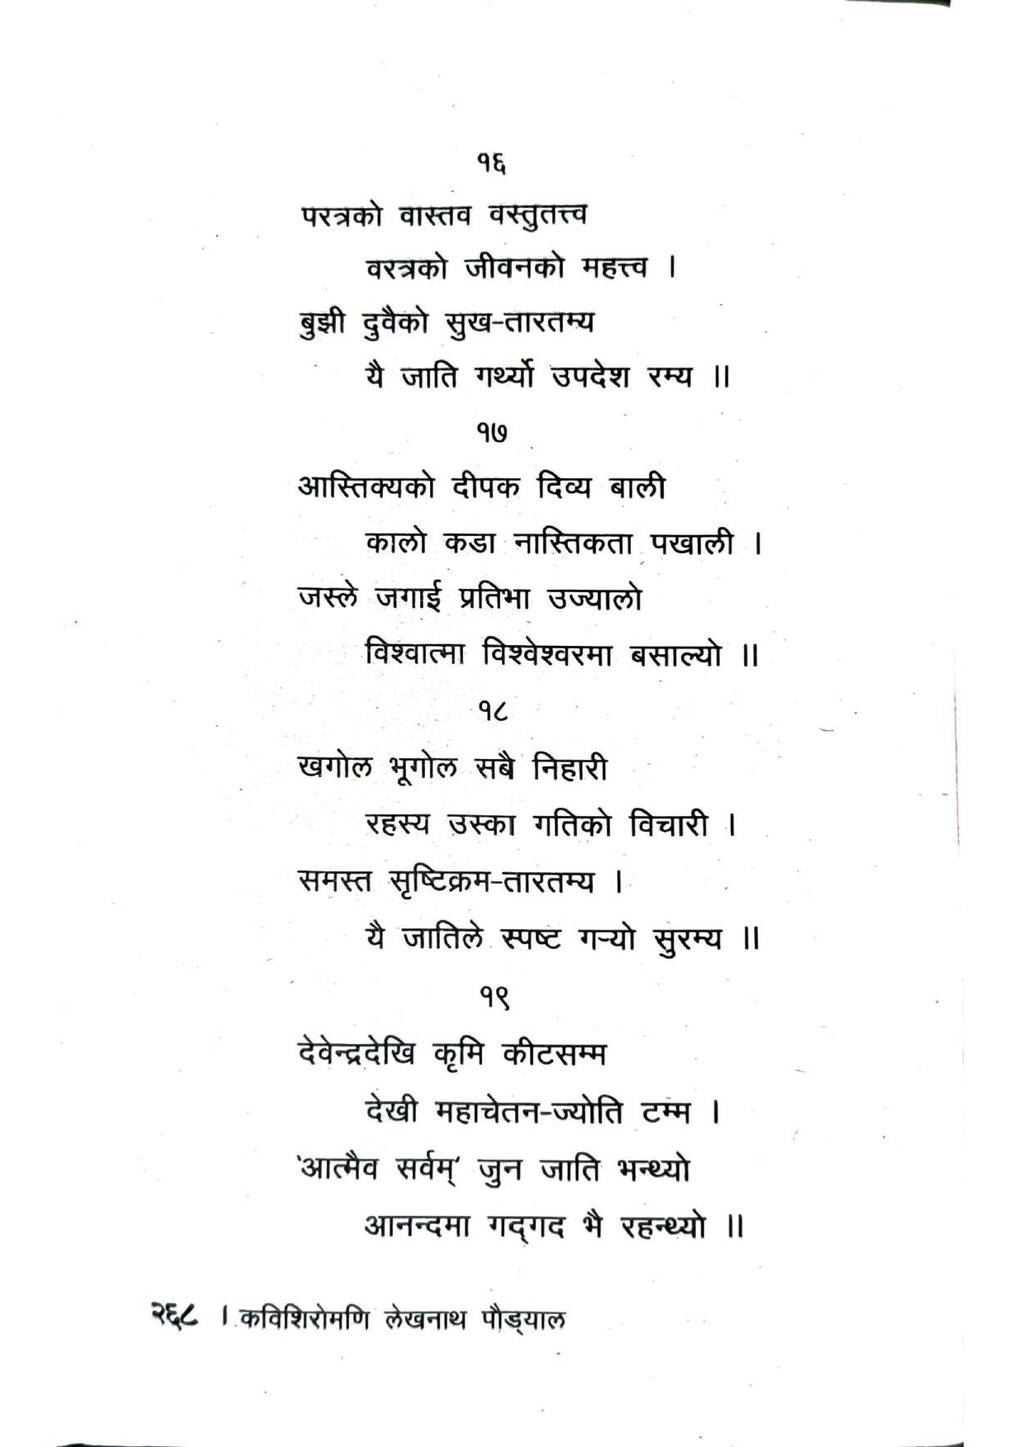 १६
परत्रको वास्तव वस्तुतत्त्व
वरत्रको जीवनको महत्त्व ।
बुझी दुवैको सुख-तारतम्य
यै जाति गर्थ्यो उपदेश रम्य ॥
१७
आस्तिक्यको दीपक दिव्य बाली
कालो कडा नास्तिकता पखाली ।
जस्ले जगाई प्रतिभा उज्यालो
विश्वात्मा विश्वेश्वरमा बसाल्यो ॥
१८
खगोल भूगोल सबै निहारी
रहस्य उस्का गतिको विचारी ।
समस्त सृष्टिक्रम-तारतम्य ।
यै जातिले स्पष्ट गऱ्यो सुरम्य ॥
१९
देवेन्द्रदेखि कृमि कीटसम्म
देखी महाचेतन-ज्योति टम्म ।
'आत्मैव सर्वम्' जुन जाति भन्थ्यो
आनन्दमा गद्‌गद भै रहन्थ्यो ॥
२६८ । कविशिरोमणि लेखनाथ पौड्याल